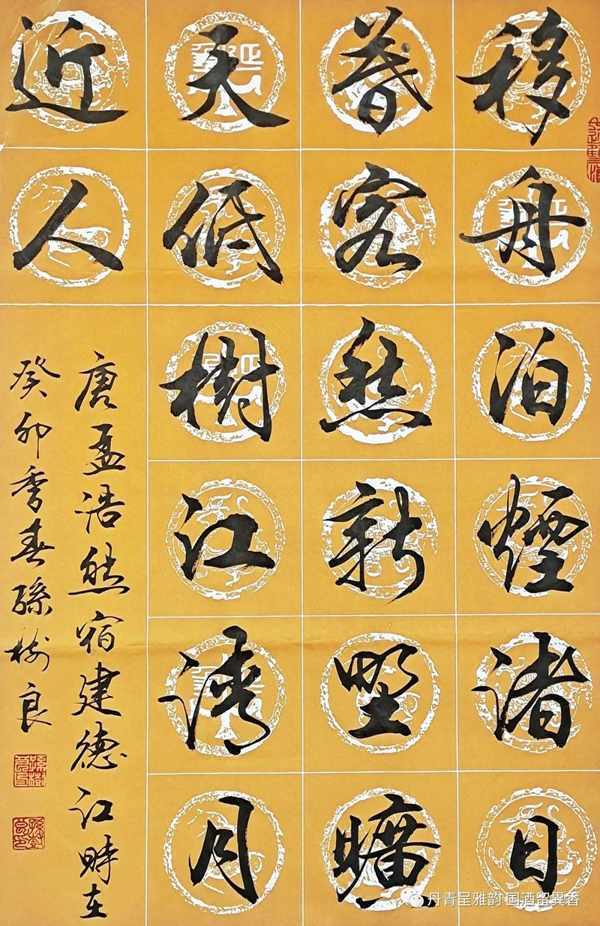 移舟泊煙渚日
暮客愁新野曠
天低樹江清月
近人
唐孟浩然宿建德江時在
癸卯季春孫樹良
丹青呈雅韵国酒留異香